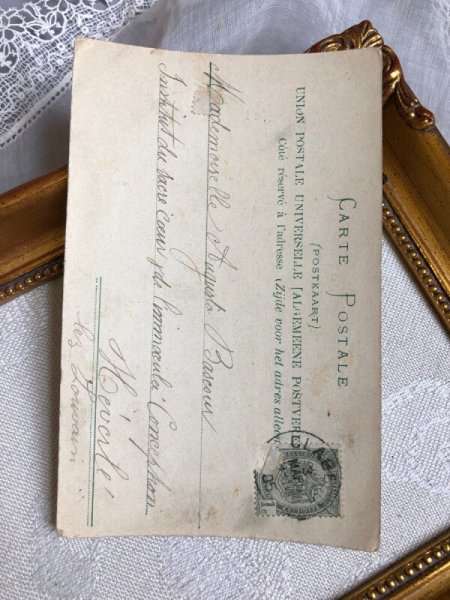 CARTE POSTALE
(POSTKAART)
UNION POSTALE UNIVERSELLE [ALGEMEENE POSTVERE
Côté réservé à l'adresse (Zijde voor het adres alleen
Mademoiselle Augusta Bascour
Institut du sacré cœur de l'immaculée Conception
Héverlé
lez Louvain